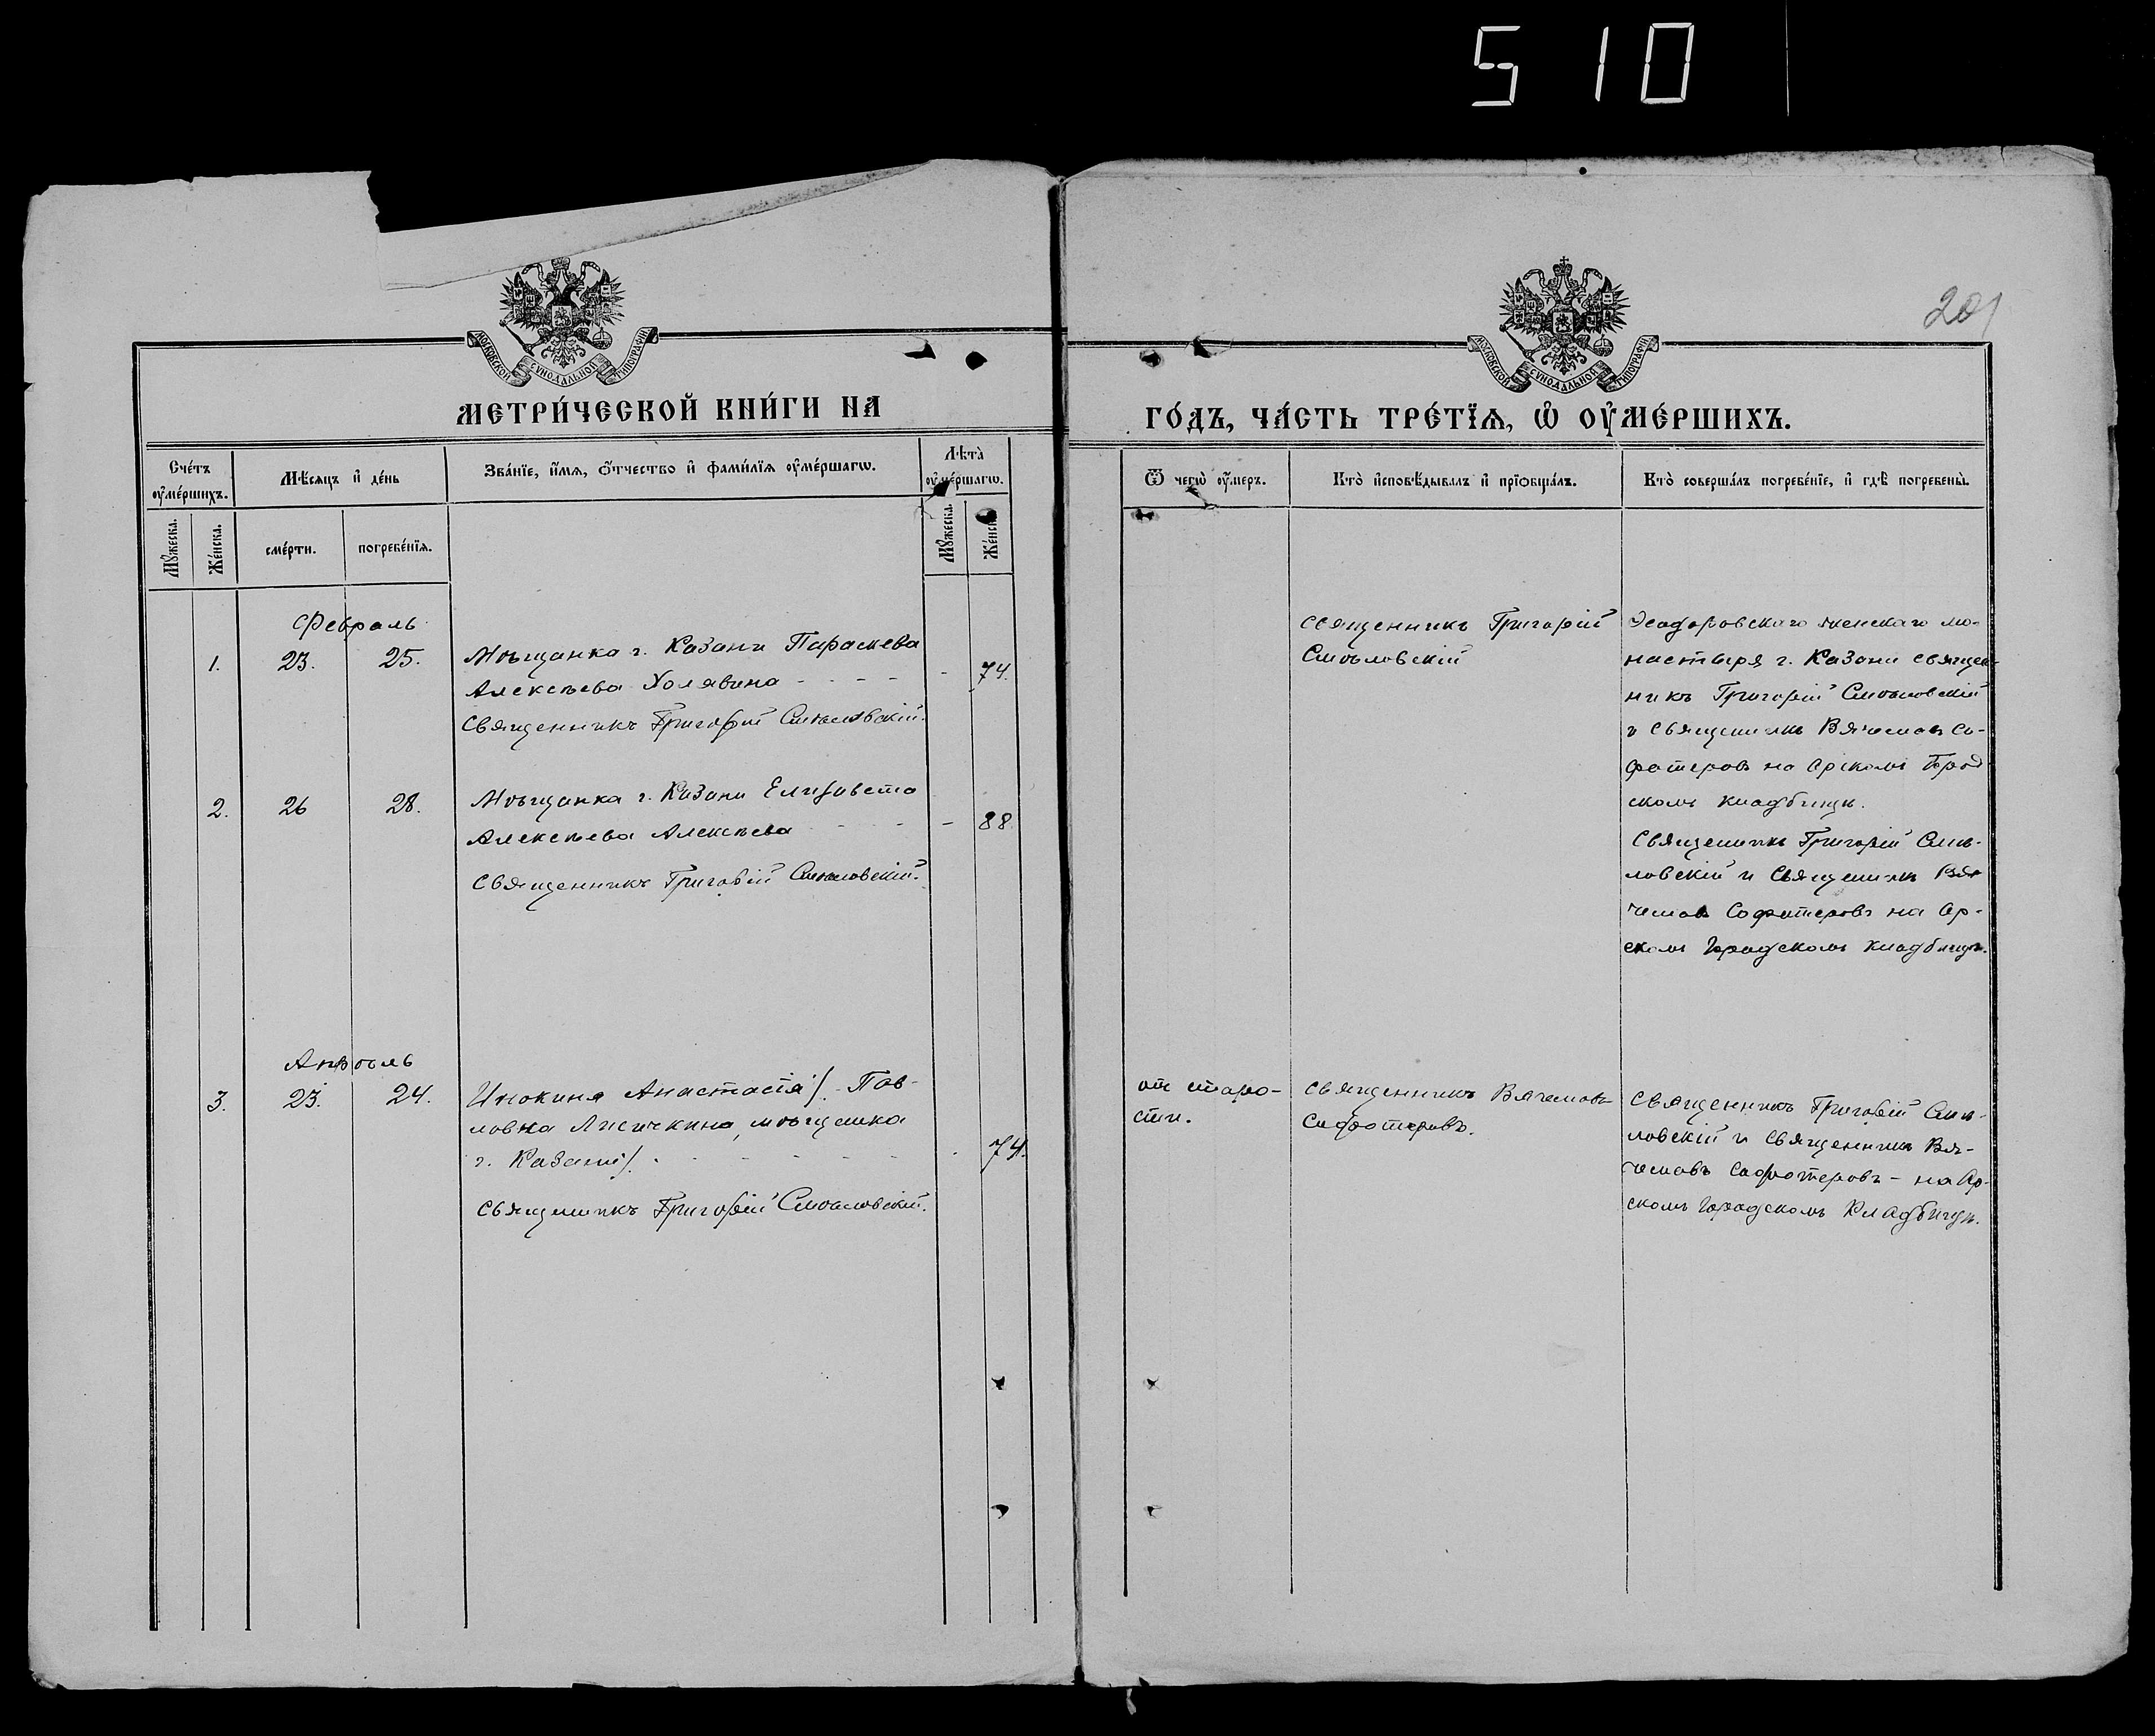 510
201
МОСКОВСКОЙ СѴНОДАЛЬНОЙ ТИПОГРАФІИ
МОСКОВСКОЙ СѴНОДАЛЬНОЙ ТИПОГРАФІИ
МЕТРИ́ЧЕСКОЙ КНИ́ГИ НА
ГО́ДЪ, ЧА́СТЬ ТРЕ́ТЇѦ, Ѡ҆ ОУ҆МЕ́РШИХЪ.
Сче́тъ оу҆ме́ршихъ.
Мѣ́сѧцъ и҆ де́нь
Зва́нїе, и҆́мѧ, ѻ҆́тчество и҆ фами́лїѧ оу҆ме́ршагѡ.
Лѣ̑та̀ оу҆ме́ршагѡ.
Мꙋ́жеска.
Же́нска.
сме́рти.
погребе́нїѧ.
Мꙋ́жеска.
Же́нска.
Ѿ чегѡ̀ оу҆́меръ.
Кто̀ и҆сповѣ́дывалъ и҆ прїѻбща́лъ.
Кто̀ соверша́лъ погребе́нїе, и҆ гдѣ̀ погребены̀.
Февраль
1. 23. 25. Мѣщанка г. Казани Параскева
Алексѣева Холявина - - - - - 74.
Священникъ Григорій Смѣловскій.
священникъ Григорій
Смѣловскій
Ѳеодоровскаго женскаго мо-
настыря г. Казани священ-
никъ Григорій Смѣловскій
и священникъ Вячеславъ Со-
фотеровъ на Арскомъ Град
скомъ кладбищѣ.
2. 26 28. Мѣщанка г. Казани Елизавета
Алексѣева Алексѣева - - - - 88
Священникъ Григорій Смѣловскій.
Священникъ Григорій Смѣ-
ловскій и Священникъ Вя-
чеславъ Софотеровъ на Ар-
скомъ Городскомъ кладбищѣ.
Апрѣль
3. 23. 24. Инокиня Анастасія /. Пав-
ловна Лисичкина, мѣщанка
г. Казани /. - - - - - 74.
Священникъ Григорій Смѣловскій.
отъ старо-
сти.
Священникъ Вячеславъ
Софотеровъ.
Священникъ Григорій Смѣ-
ловскій и Священникъ Вя-
чеславъ Софотеровъ - на Ар-
скомъ Городскомъ Кладбищѣ.